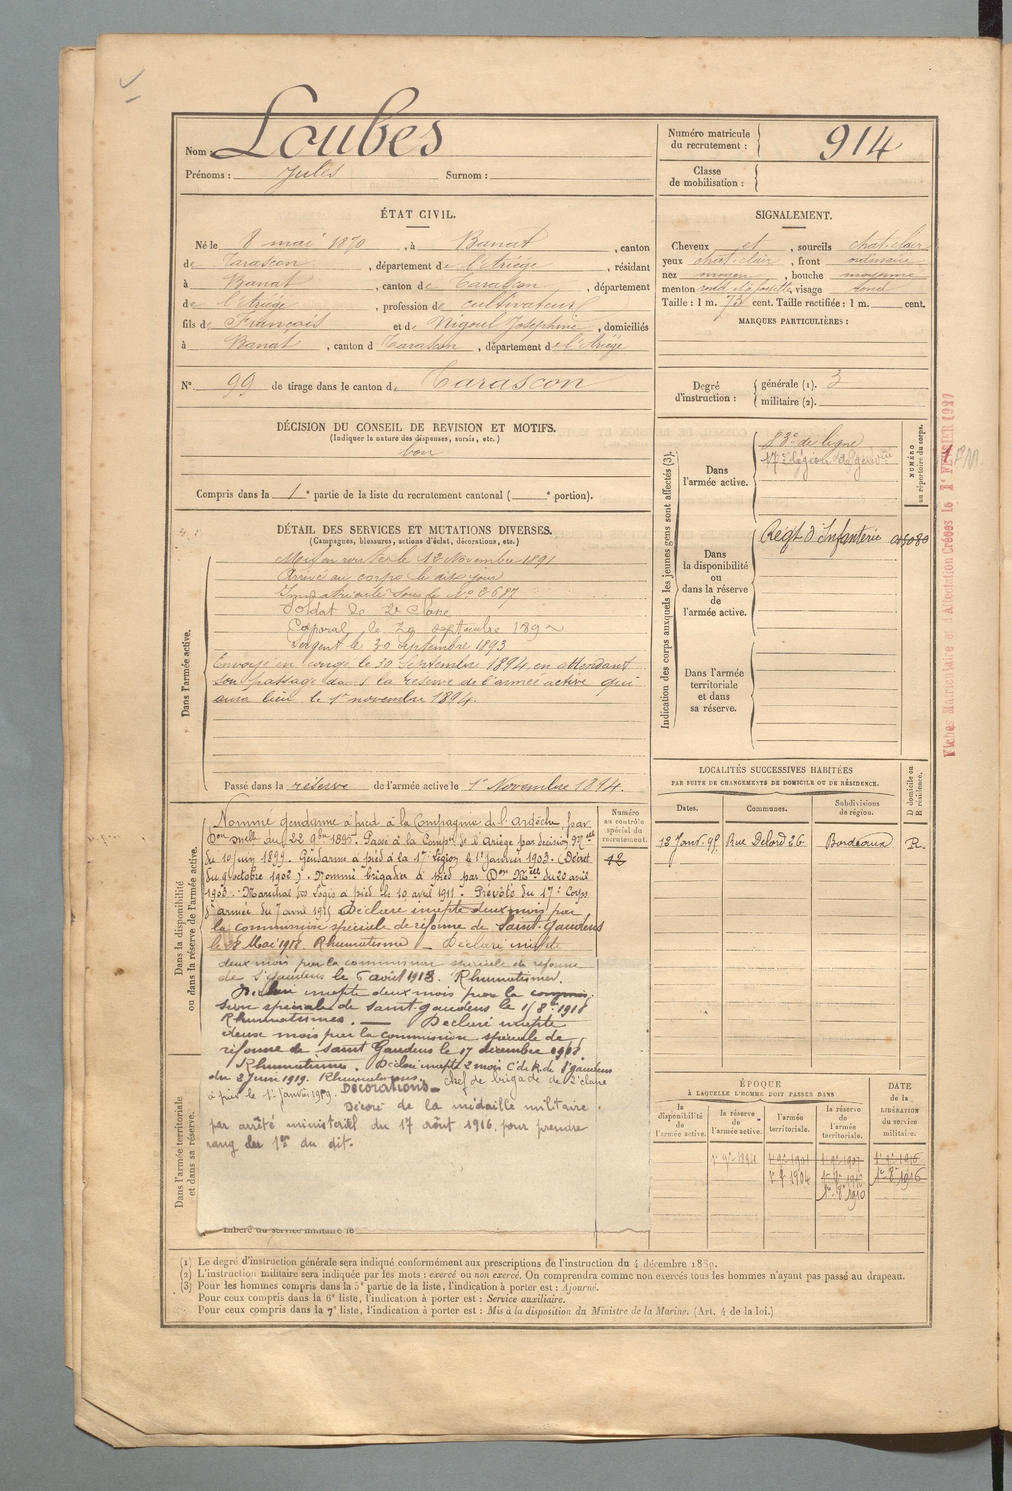 Nom : Loubes
Prénoms : Jules Surnom :
Numéro matricule du recrutement : 914
Classe de mobilisation :
ÉTAT CIVIL.
Né le 8 mai 1870, à Banat, canton
de Tarascon, département de l'Ariége, résidant
à Banat, canton de Tarascon, département
de l'Ariége, profession de cultivateur
fils de Français et de Nigoul Joséphine, domiciliés
à Banat, canton d Tarascon, département de l'Ariége
N° 99 de tirage dans le canton de Tarascon
SIGNALEMENT.
Cheveux et, sourcils chat. clair
yeux chat. clair, front ordinaire
nez moyen, bouche moyenne
menton rond et à fossette, visage rond
Taille : 1 m. 73 cent. Taille rectifiée : 1 m. cent.
MARQUES PARTICULIÈRES :
Degré d'instruction : générale (1). 3
militaire (2).
DÉCISION DU CONSEIL DE REVISION ET MOTIFS.
(Indiquer la nature des dispenses, sursis, etc.)
bon
Compris dans la 1e partie de la liste du recrutement cantonal ( e portion).
DÉTAIL DES SERVICES ET MUTATIONS DIVERSES.
(Campagnes, blessures, actions d'éclat, décorations, etc.)
Dans l'armée active.
Mis en route le 12 Novembre 1891
Arrivé au corps le dit jour
Immatriculé sous le No 2687
Soldat de 2e Classe
Caporal le 29 septembre 1892
Sergent le 30 Septembre 1893
Envoyé en congé le 30 Septembre 1894, en attendant
son passage dans la réserve de l'armée active qui
aura lieu le 1er novembre 1894.
Passé dans la réserve de l'armée active le 1er Novembre 1894.
Indication des corps auxquels les jeunes gens sont affectés (3).
NUMÉRO au répertoire du corps.
Dans l'armée active.
83e de ligne
17e légion de gendrie
Dans la disponibilité ou dans la réserve de l'armée active.
Régt d'Infanterie
Dans l'armée territoriale et dans sa réserve.
Fiches Matriculaire et d'Affectation Créées le 1er FEVRIER 1927
Dans la disponibilité ou dans la réserve de l'armée active.
Nommé gendarme à pied à la Compagnie de l'Ardèche, par
Don mlle du 22 9bre 1895. Passé à la Compie de l'Ariège par décision Mlle
du 10 juin 1899. Gendarme à pied à la 17e Légion le 1er janvier 1903. (Décret
du 9 octobre 1902). Nommé brigadier à pied par Don Mlle du 20 avril
1903. Maréchal des Logis à pied le 10 avril 1911. Prévôté du 17e Corps
d'armée du 7 avril 1915 Déclaré inapte deux mois par
la commission spéciale de réforme de Saint-Gaudens
le 28 Mai 1918 Rhumatisme _ Déclaré inapte
deux mois par la commission spéciale de réforme
de St Gaudens le 6 août 1918. Rhumatismes.
Déclaré inapte deux mois par la commis
sion spéciale de Saint-Gaudens le 1 / 8bre 1918
Rhumatismes. — Déclaré inapte
deux mois par la commission spéciale de
réforme de Saint Gaudens le 17 décembre 1918.
Rhumatismes. Déclaré inapte 2 mois C. de R. de St gaudens
du 3 Juin 1919. Rhumatismes. chef de brigade de 2e classe
à pied le 1er janvier 1919. DÉCORATIONS_
Décoré de la médaille militaire.
par arrêté ministériel du 17 août 1916, pour prendre
rang du 1er du dit.
Numéro au contrôle spécial du recrutement.
12
Dans l'armée territoriale et dans sa réserve.
Libéré du service militaire le
LOCALITÉS SUCCESSIVES HABITÉES
PAR SUITE DE CHANGEMENTS DE DOMICILE OU DE RÉSIDENCE.
Dates. Communes. Subdivisions de région. D domicile ou R résidence.
12 Janv. 95 Rue Delord 26 Bordeaux R.
ÉPOQUE
À LAQUELLE L'HOMME DOIT PASSER DANS
la disponibilité de l'armée active.
la réserve de l'armée active.
l'armée territoriale.
la réserve de l'armée territoriale.
DATE DE LA LIBÉRATION du service militaire.
1er 9bre 1894
(1) Le degré d'instruction générale sera indiqué conformément aux prescriptions de l'instruction du 4 décembre 1889.
(2) L'instruction militaire sera indiquée par les mots : exercé ou non exercé. On comprendra comme non exercés tous les hommes n'ayant pas passé au drapeau.
(3) Pour les hommes compris dans la 5e partie de la liste, l'indication à porter est : Ajourné.
Pour ceux compris dans la 6e liste, l'indication à porter est : Service auxiliaire.
Pour ceux compris dans la 7e liste, l'indication à porter est : Mis à la disposition du Ministre de la Marine. (Art. 4 de la loi.)